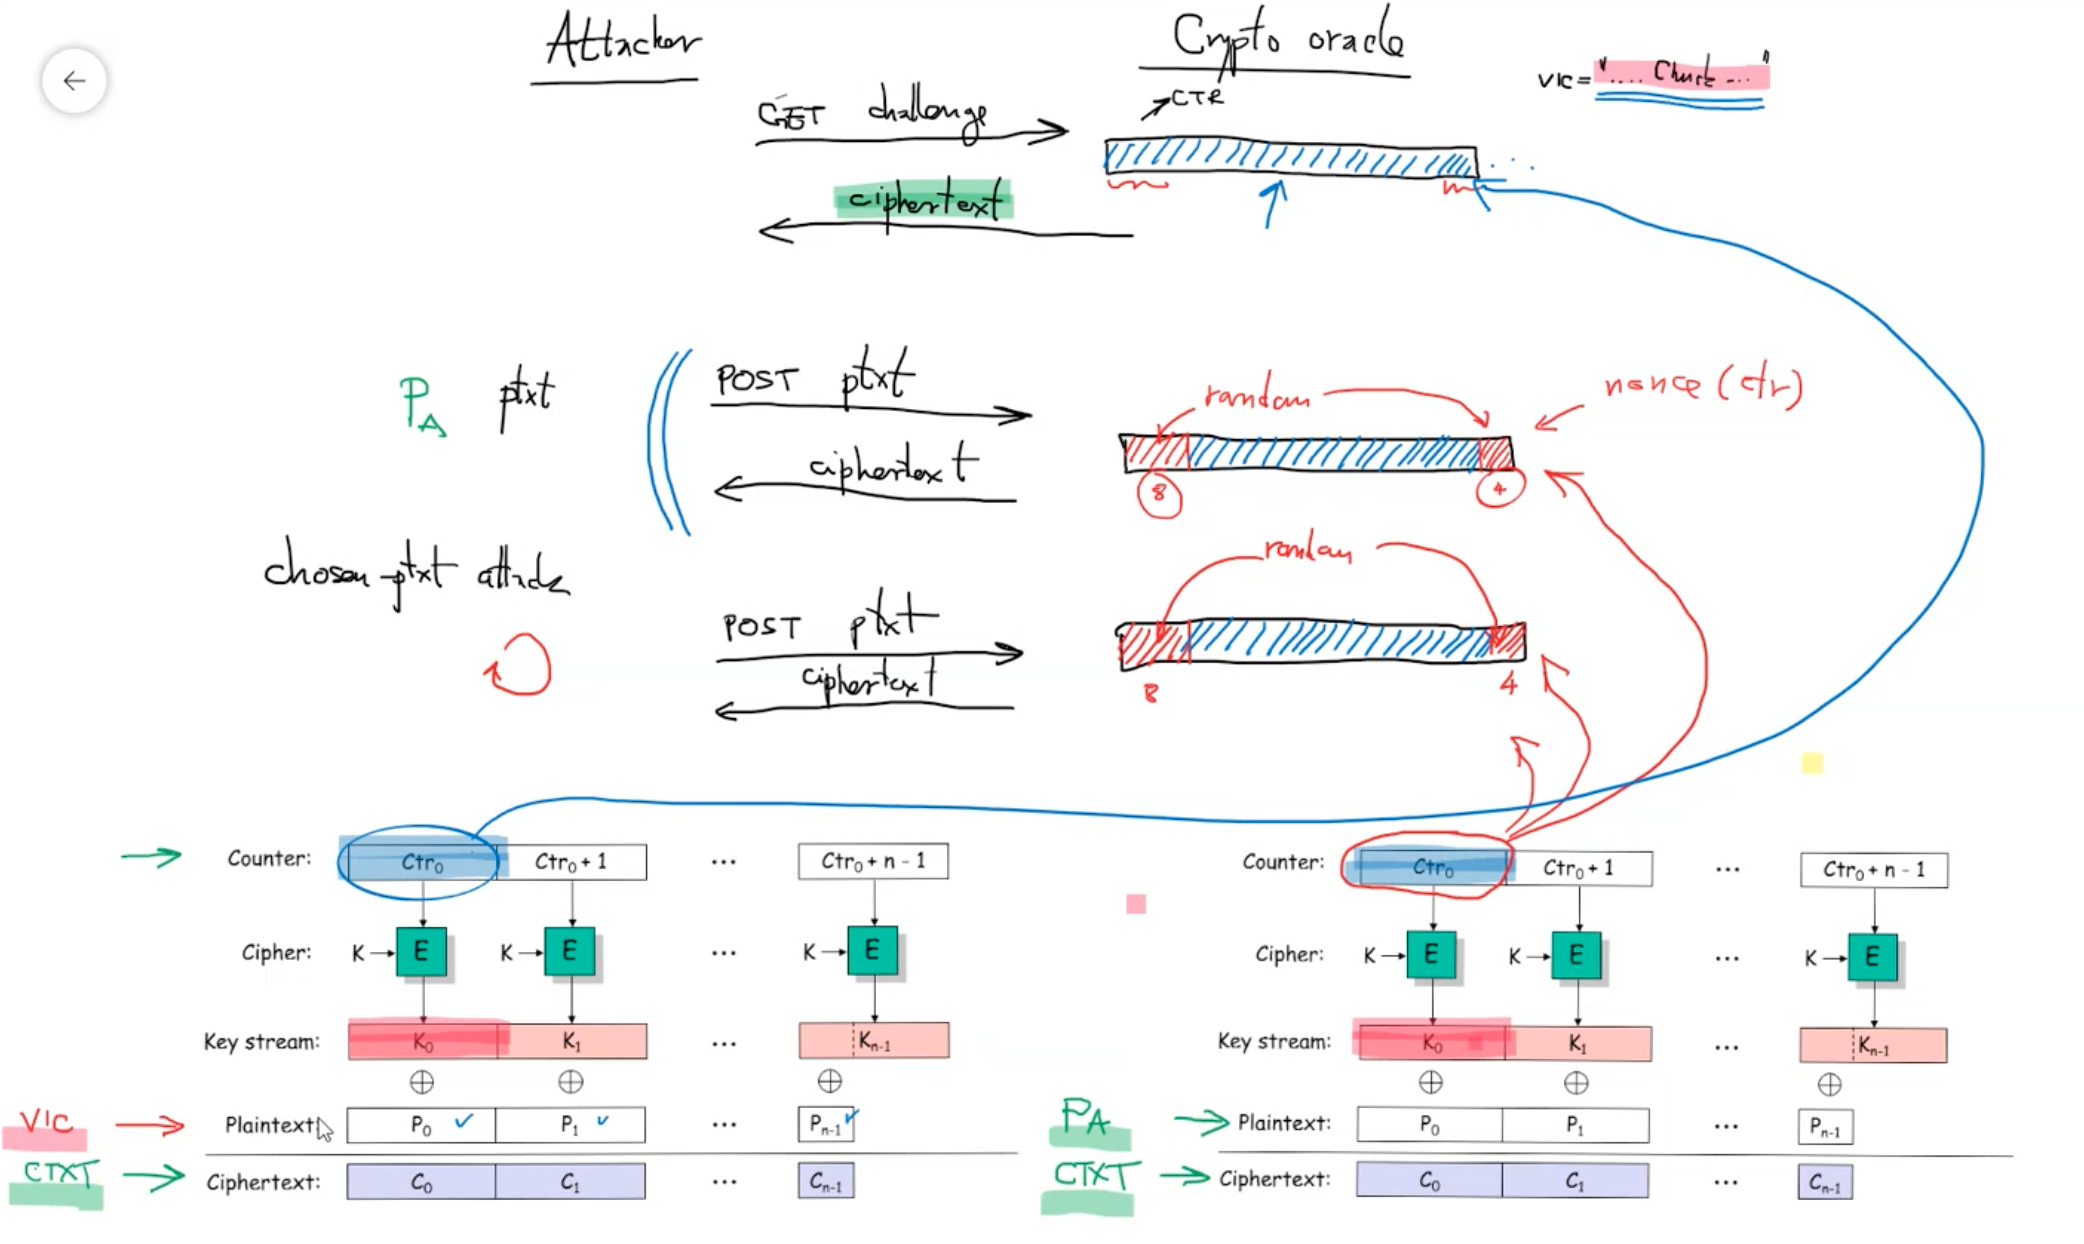 Attacker
Crypto oracle
VIC = ".... Chuck ... "
CTR
GET challenge
ciphertext
PA ptxt
POST ptxt
random
nonce (ctr)
ciphertext
8
4
chosen-ptxt attack
random
POST ptxt
ciphertext
8
4
Counter: Ctr0 Ctr0 + 1 ... Ctr0 + n - 1
Cipher: K E K E ... K E
Key stream: K0 K1 ... Kn-1
⊕ ⊕ ⊕
VIC Plaintext: P0 ✓ P1 ✓ ... Pn-1 ✓
CTXT Ciphertext: C0 C1 ... Cn-1
Counter: Ctr0 Ctr0 + 1 ... Ctr0 + n - 1
Cipher: K E K E ... K E
Key stream: K0 K1 ... Kn-1
⊕ ⊕ ⊕
PA Plaintext: P0 P1 ... Pn-1
CTXT Ciphertext: C0 C1 ... Cn-1